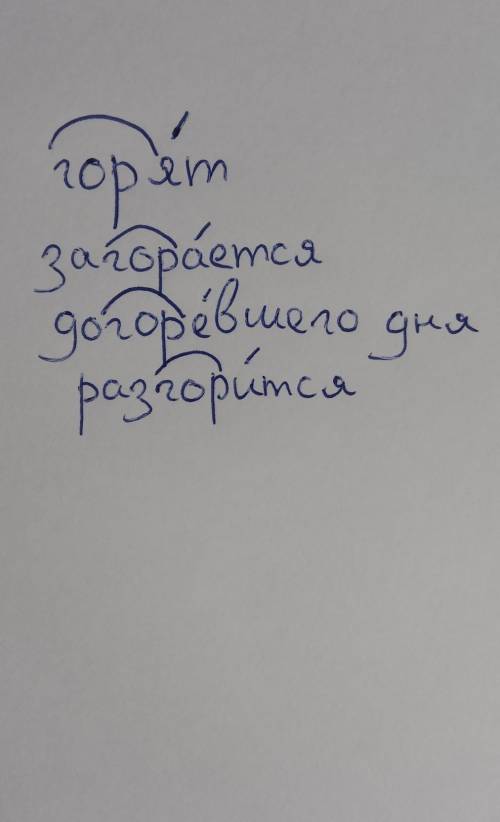 горя́т
загора́ется
догоре́вшего дня
разгори́тся